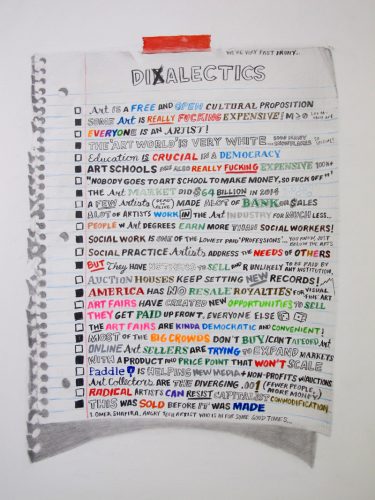 WE'RE VERY PAST IRONY...
DIXALECTICS
Art is A FREE AND OPEN CULTURAL PROPOSITION
SOME Art is REALLY FUCKING EXPENSIVE!
EVERYONE IS AN ARTIST!
THE ART WORLD IS VERY WHITE...
Education is CRUCIAL IN A DEMOCRACY
ART SCHOOLS ARE ALSO REALLY FUCKING EXPENSIVE
"NOBODY GOES TO ART SCHOOL TO MAKE MONEY, SO FUCK OFF"!
The Art MARKET DID $64 BILLION IN 2014
A FEW Artists (DEAD/ALIVE) MADE ALOT OF BANK OR $ALES
ALOT OF ARTISTS WORK IN THE Art INDUSTRY FOR MUCH LESS...
PEOPLE W Art DEGREES EARN MORE THAN SOCIAL WORKERS!
SOCIAL WORK IS ONE OF THE LOWEST PAID PROFESSIONS! YOU KNOW, JUST BELOW THE ARTS
SOCIAL PRACTICE Artists ADDRESS THE NEEDS OF OTHERS
BUT They HAVE NOTHING TO SELL & UNLIKELY TO BE PAID BY ANY INSTITUTION,
AUCTION HOUSES KEEP SETTING NEW RECORDS!
AMERICA HAS NO RESALE ROYALTIES FOR VISUAL FINE ART
ART FAIRS HAVE CREATED NEW OPPORTUNITIES TO SELL
THEY GET PAID UP FRONT. EVERYONE ELSE
THE ART FAIRS ARE KINDA DEMOCRATIC AND CONVENIENT!
MOST OF THE BIG CROWDS DON'T BUY (CAN'T AFFORD) ART
ONLINE Art SELLERS ARE TRYING TO EXPAND MARKETS
WITH A PRODUCT AND PRICE POINT THAT WON'T SCALE
Paddle8 IS HELPING NEW MEDIA + NON-PROFITS W/AUCTIONS
Art COLLECTORS ARE THE DIVERGING .001 (FEWER PEOPLE, MORE MONEY)
RADICAL ARTISTS CAN RESIST CAPITALIST COMMODIFICATION
THIS WAS SOLD BEFORE IT WAS MADE